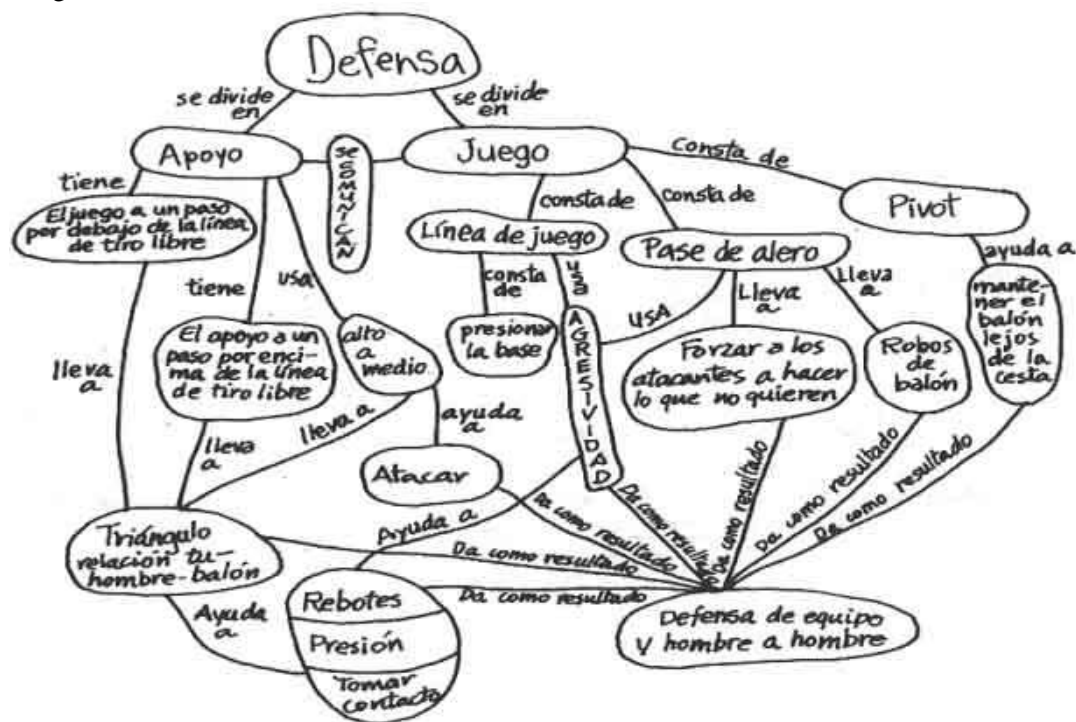 Defensa
se divide
en
se divide
en
Apoyo
SE COMUNICAN
Juego
Consta de
Pivot
tiene
El juego a un paso
por debajo de la línea
de tiro libre
tiene
usa
consta de
consta de
Línea de juego
Pase de alero
ayuda a
consta
de
usa
AGRESIVIDAD
USA
Lleva
a
Lleva
a
mante-
ner el
balón
lejos
de la
cesta
presionar
la base
El apoyo a un
paso por enci-
ma de la línea
de tiro libre
alto
a
medio
Forzar a los
atacantes a hacer
lo que no quieren
Robos
de
balón
lleva
a
lleva
a
lleva a
ayuda
a
Atacar
Ayuda a
Da como resultado
Da como resultado
Da como resultado
Da como resultado
Da como resultado
Triángulo
relación tu-
hombre-balón
Da como resultado
Ayuda
a
Rebotes
Presión
Tomar
contacto
Da como resultado
Defensa de equipo
y hombre a hombre